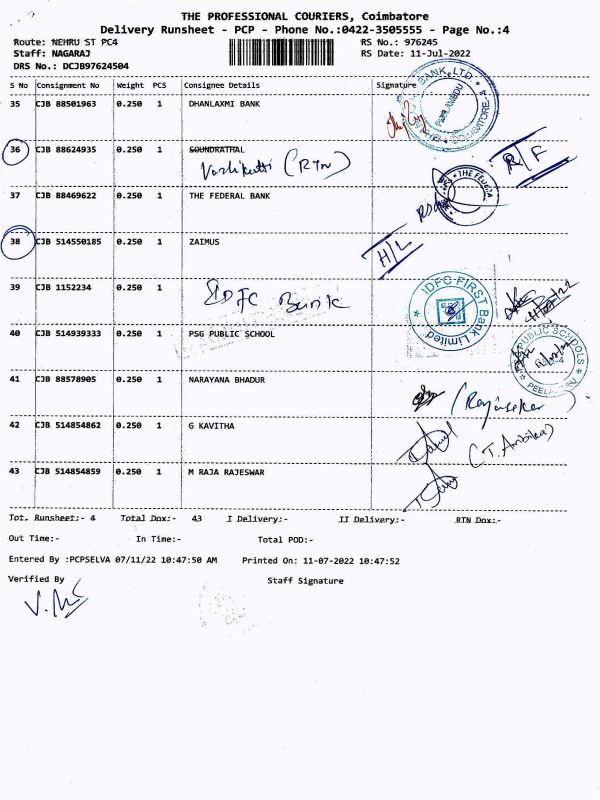 THE PROFESSIONAL COURIERS, Coimbatore
Delivery Runsheet - PCP - Phone No.:0422-3505555 - Page No.:4
Route: NEHRU ST PC4 RS No.: 976245
Staff: NAGARAJ RS Date: 11-Jul-2022
DRS No.: DCJB97624504
S No Consignment No Weight PCS Consignee Details Signature
35 CJB 88501963 0.250 1 DHANLAXMI BANK
BANK LTD. COIMBATORE
36 CJB 88624935 0.250 1 SOUNDRATHAL
(RTN) R/F
37 CJB 88469622 0.250 1 THE FEDERAL BANK
THE FEDERA
38 CJB 514550185 0.250 1 ZAIMUS
H/L
39 CJB 1152234 0.250 1 IDFC Bank
IDFC FIRST Bank Limited
40 CJB 514939333 0.250 1 PSG PUBLIC SCHOOL
PUBLIC SCHOOLS
41 CJB 88578905 0.250 1 NARAYANA BHADUR
(Rajasekar)
42 CJB 514854862 0.250 1 G KAVITHA
(T. Ambika)
43 CJB 514854859 0.250 1 M RAJA RAJESWAR
Tot. Runsheet:- 4 Total Dox:- 43 I Delivery:- II Delivery:- RTN Dox:-
Out Time:- In Time:- Total POD:-
Entered By :PCPSELVA 07/11/22 10:47:50 AM Printed On: 11-07-2022 10:47:52
Verified By Staff Signature